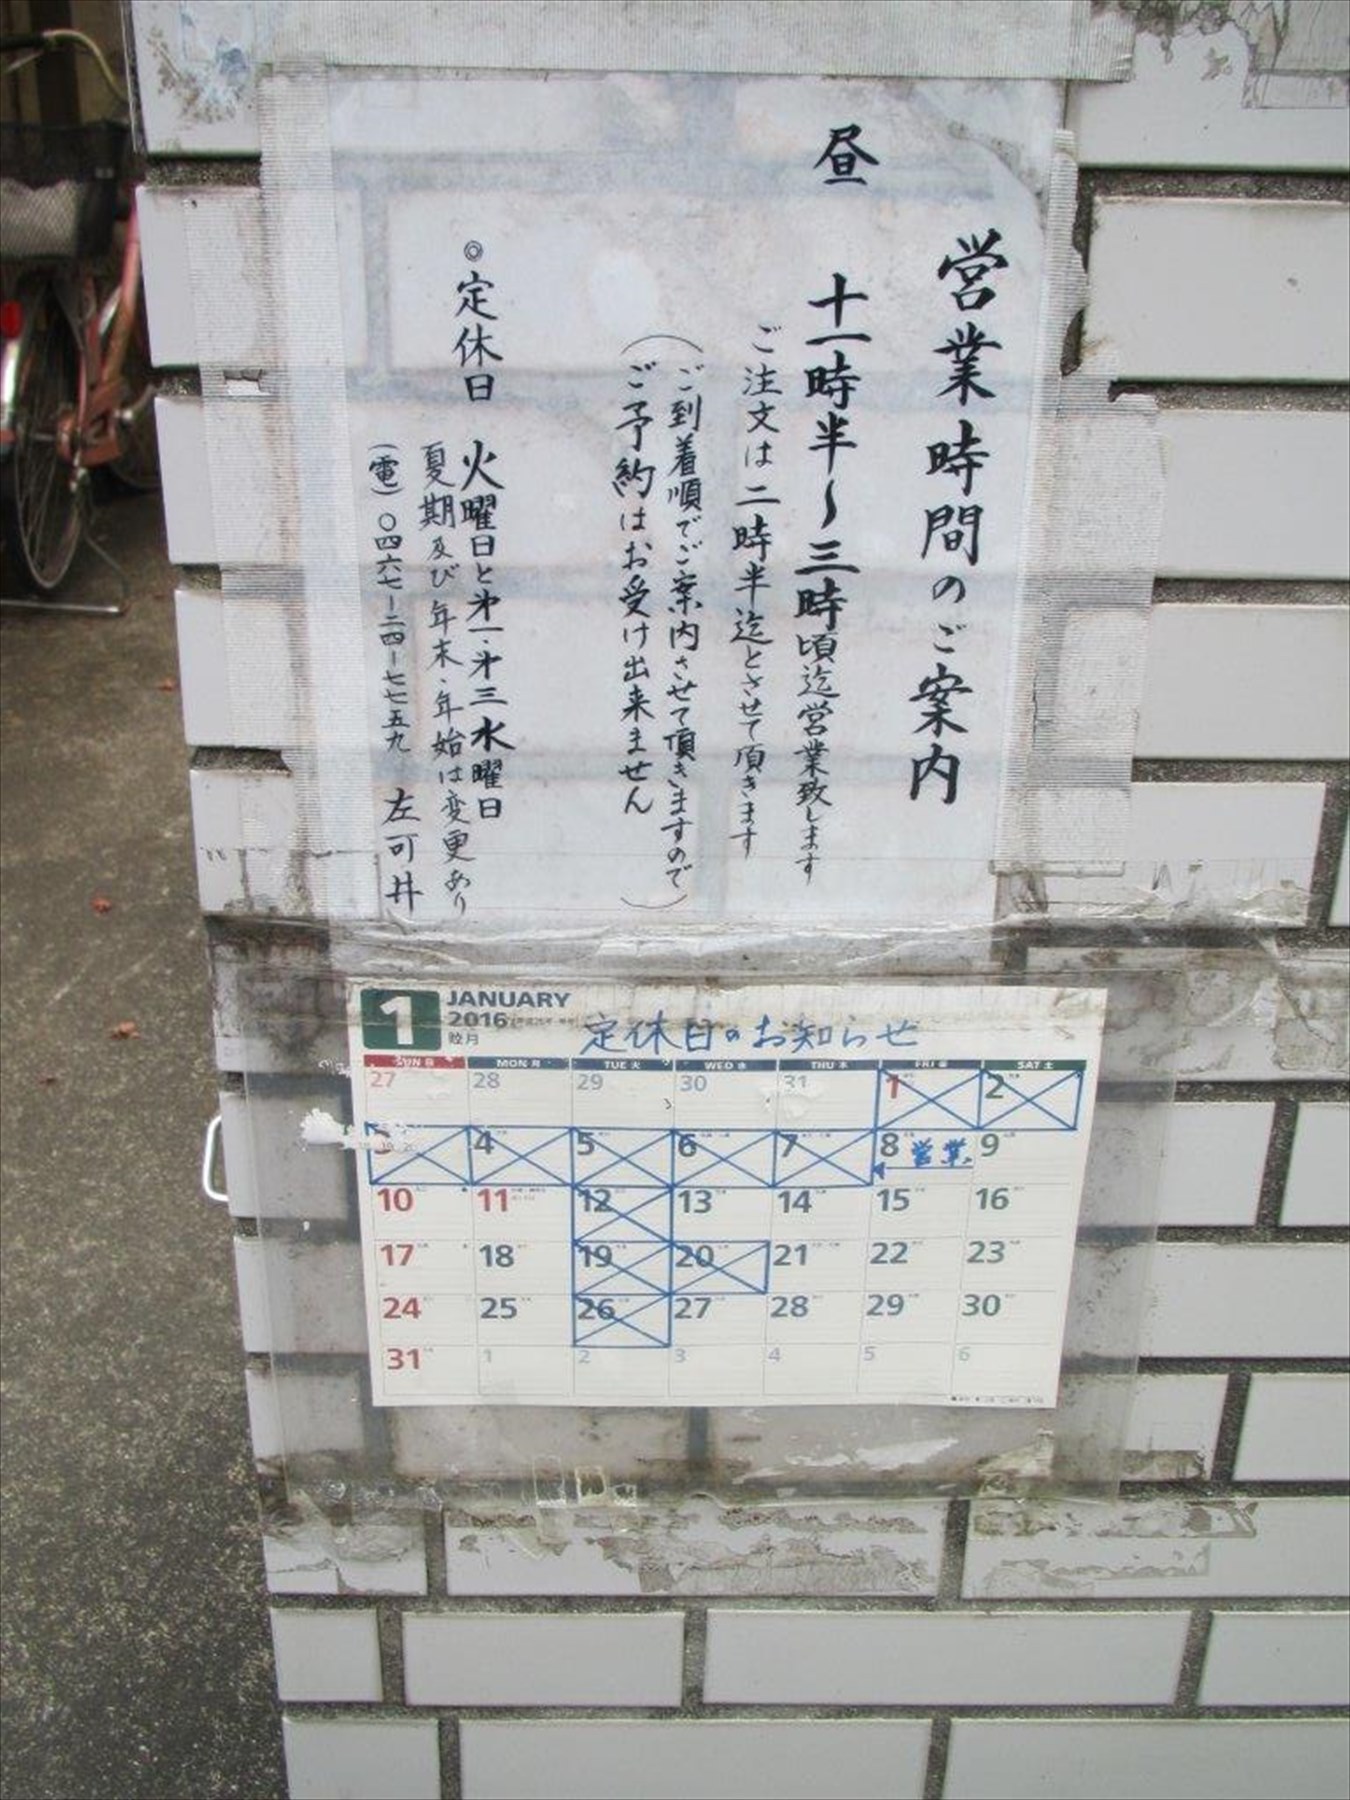 営業時間のご案内
昼 十一時半〜三時頃迄営業致します
ご注文は二時半迄とさせて頂きます
(ご到着順でご案内させて頂きますので
ご予約はお受け出来ません)
◎定休日 火曜日と第一・第三水曜日
夏期及び年末・年始は変更あり
(電)〇四六七-二四-七七五九 左可井
1 JANUARY
2016
睦月
定休日のお知らせ
SUN 日 MON 月 TUE 火 WED 水 THU 木 FRI 金 SAT 土
27 28 29 30 31 1 2
3 4 5 6 7 8 営業 9
10 11 12 13 14 15 16
17 18 19 20 21 22 23
24 25 26 27 28 29 30
31 1 2 3 4 5 6